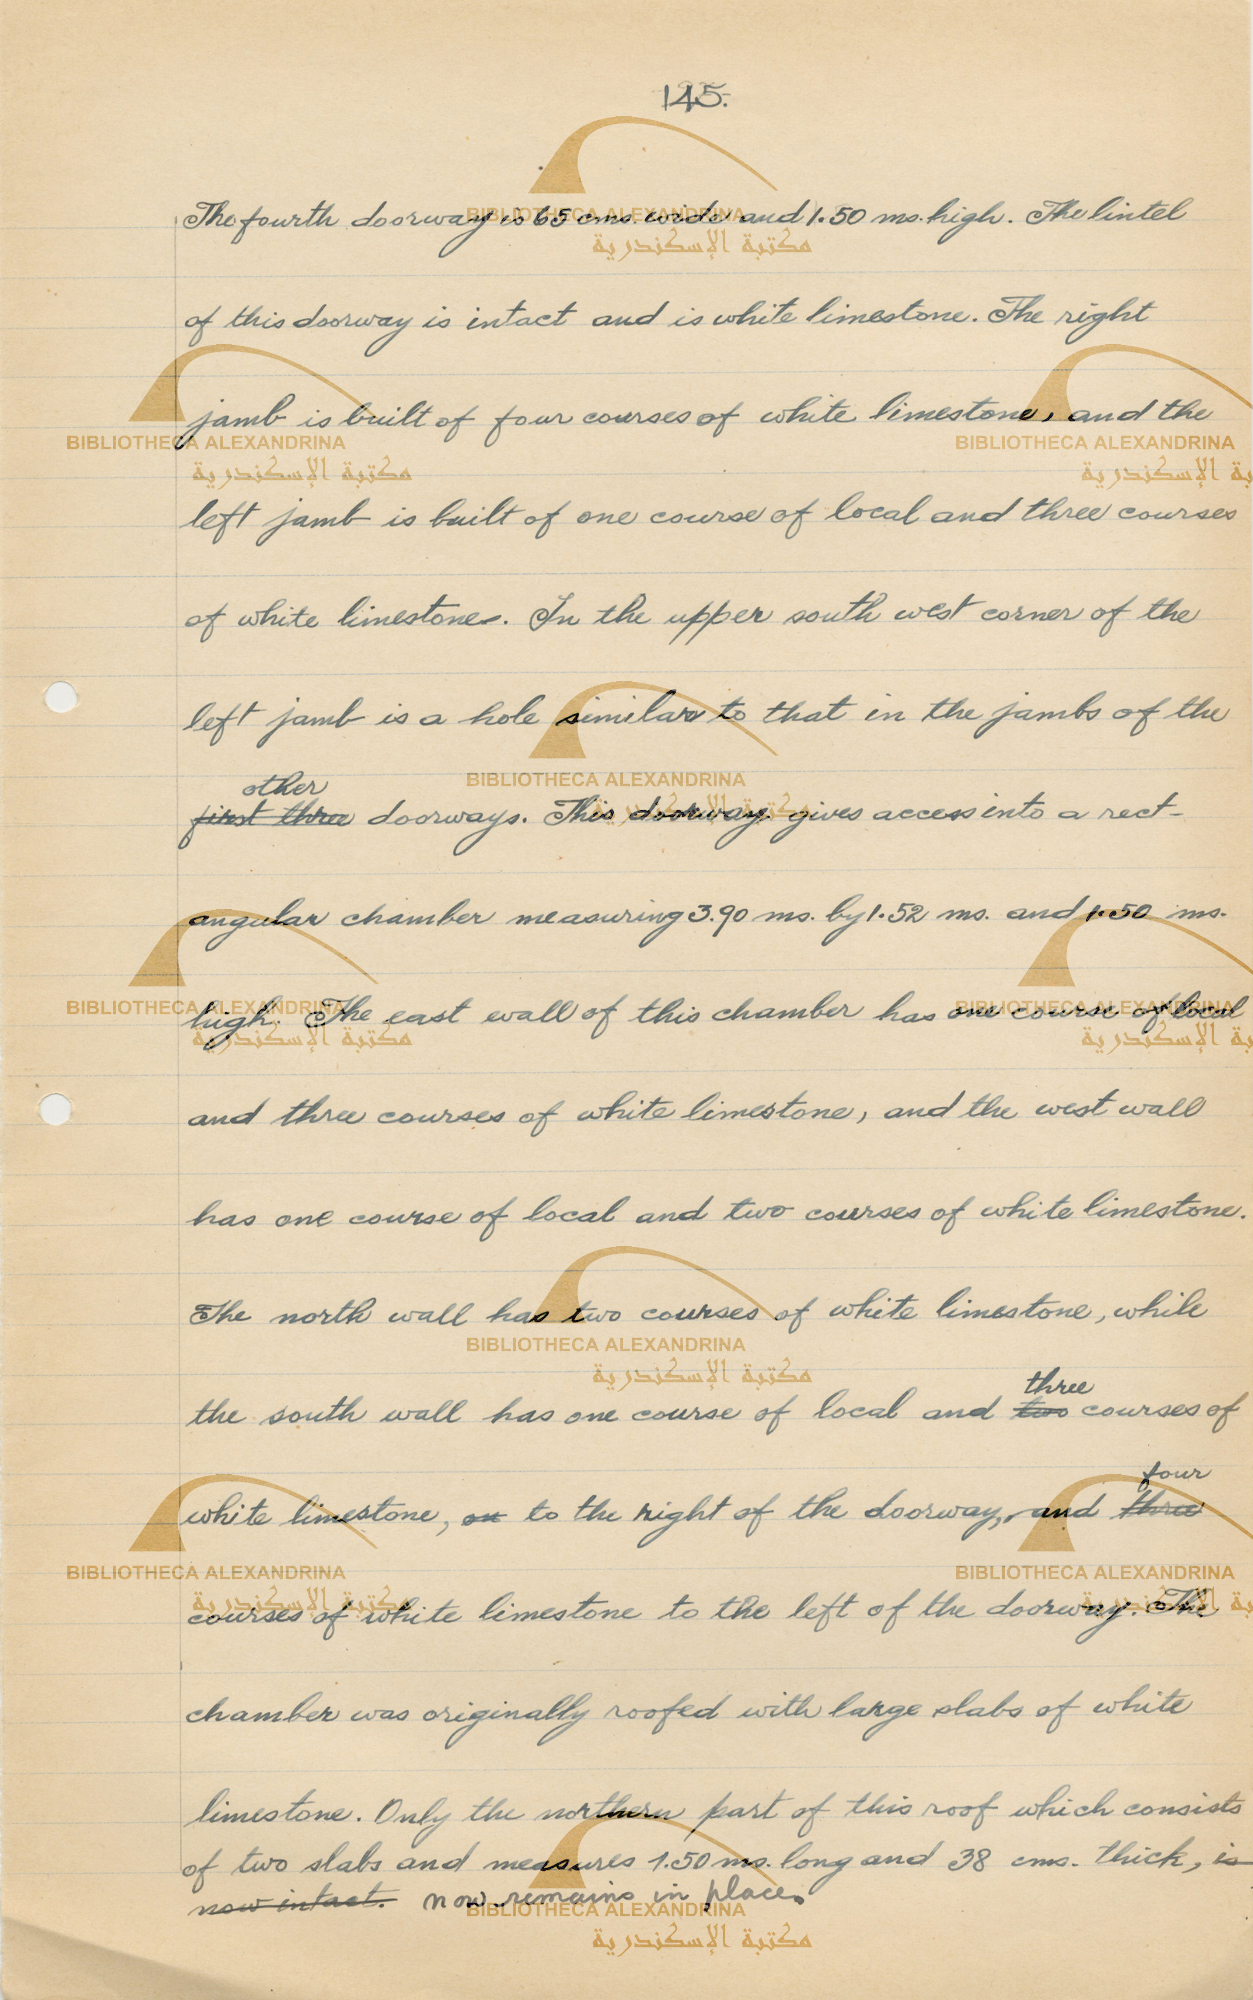 145.
The fourth doorway is 65 cms. wide and 1.50 ms. high. The lintel
of this doorway is intact and is white limestone. The right
jamb is built of four courses of white limestone, and the
left jamb is built of one course of local and three courses
of white limestone. In the upper south west corner of the
left jamb is a hole similar to that in the jambs of the
other
first three doorways. This doorway gives access into a rect-
angular chamber measuring 3.90 ms. by 1.52 ms. and 1.50 ms.
high. The east wall of this chamber has one course of local
and three courses of white limestone, and the west wall
has one course of local and two courses of white limestone.
The north wall has two courses of white limestone, while
three
the south wall has one course of local and two courses of
four
white limestone, on to the right of the doorway, and three
courses of white limestone to the left of the doorway. The
chamber was originally roofed with large slabs of white
limestone. Only the northern part of this roof which consists
of two slabs and measures 1.50 ms. long and 38 cms. thick, is
now intact. now remains in place.
BIBLIOTHECA ALEXANDRINA
مكتبة الإسكندرية